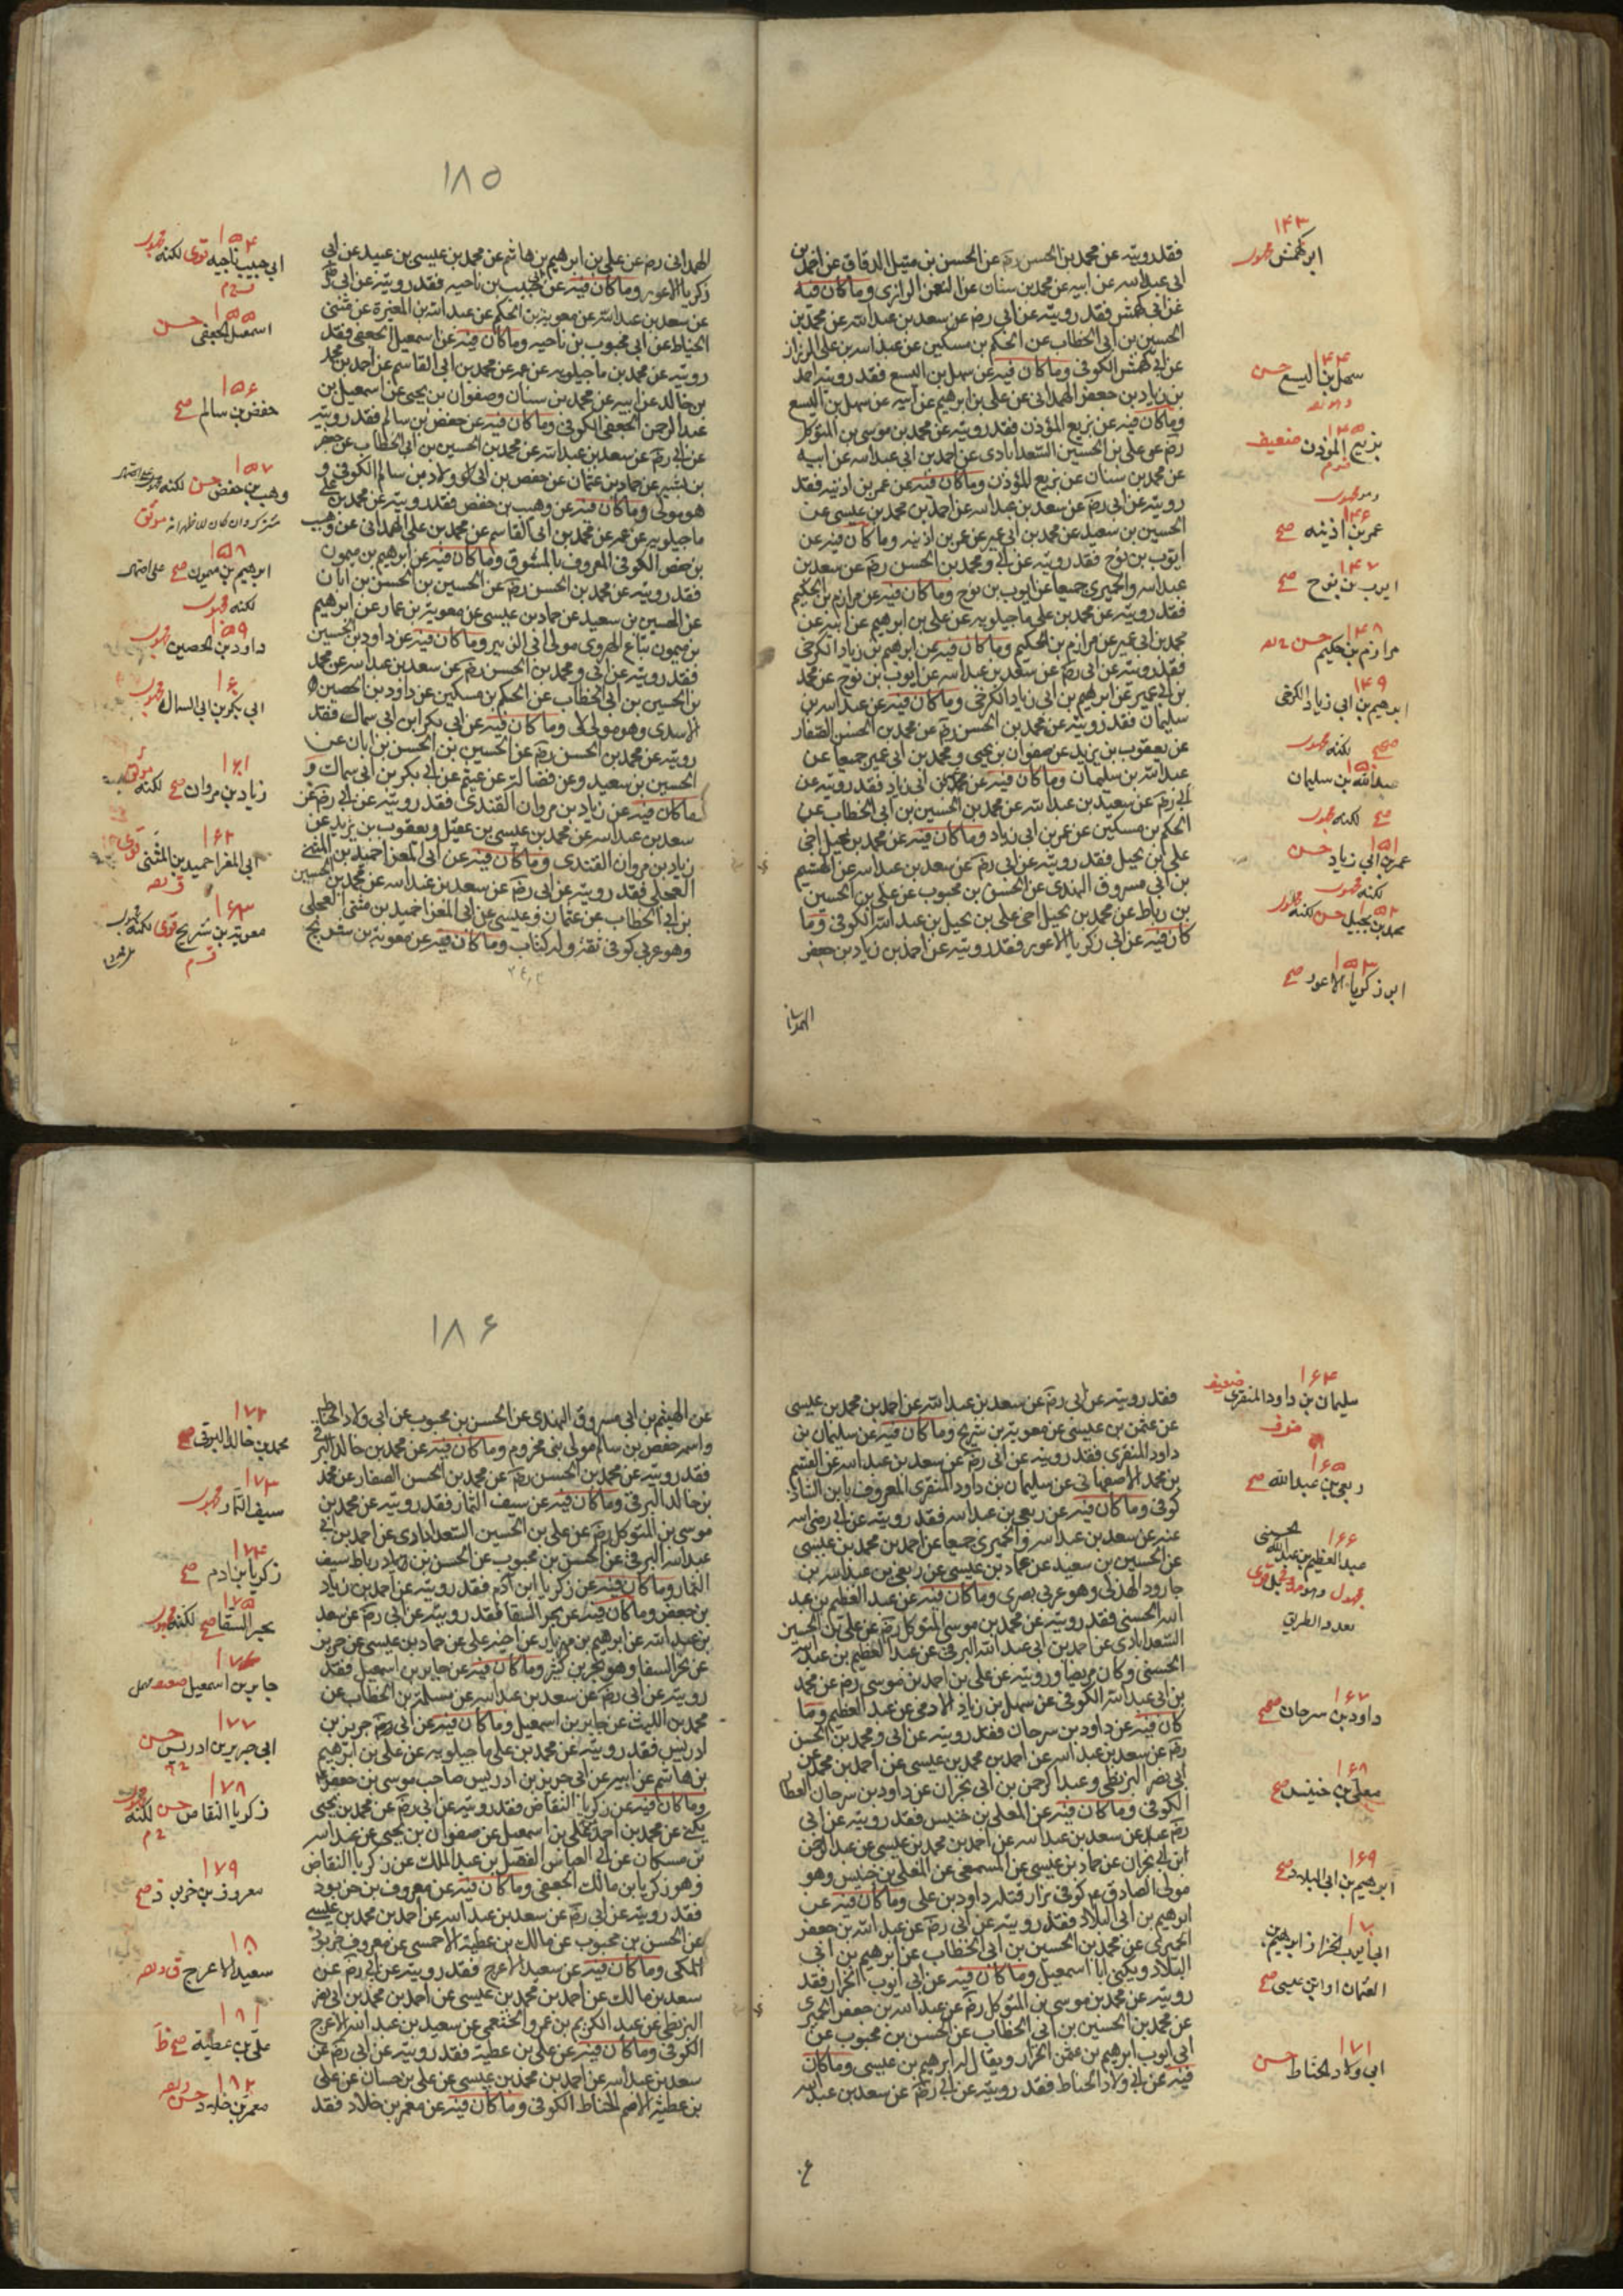 ١٤٣
ابو كهمش مجهول
فقد رويته عن محمد بن الحسن رض عن الحسن بن متيل الدقاق عن احمد بن
ابى عبد الله عن ابيه عن محمد بن سنان عن النعمن الرازى وما كان فيه
عن ابى كهمش فقد رويته عن ابى رض عن سعد بن عبد الله عن محمد بن
الحسين بن ابى الخطاب عن الحكم بن مسكين عن عبد الله بن على الزراز
عن ابى كهمش الكوفى وما كان فيه عن سهل بن اليسع فقد رويته احمد
بن زياد بن جعفر الهمدانى عن على بن ابرهيم عن ابيه عن سهل بن اليسع
وما كان فيه عن بزيع المؤذن فقد رويته عن محمد بن موسى بن المتوكل
رض عن على بن الحسين السعدابادى عن احمد بن ابى عبد الله عن ابيه
عن محمد بن سنان عن بزيع المؤذن وما كان فيه عن عمر بن اذينه فقد
رويته عن ابى رض عن سعد بن عبد الله عن احمد بن محمد بن عيسى عن
الحسين بن سعيد عن محمد بن ابى عمير عن عمر بن اذينه وما كان فيه عن
ايوب بن نوح فقد رويته عن ابى ومحمد بن الحسن رض عن سعد بن
عبد الله والحميرى جميعا عن ايوب بن نوح وما كان فيه عن مرازم بن الحكيم
فقد رويته عن محمد بن على ماجيلويه عن على بن ابرهيم عن ابيه عن
محمد بن ابى عمير عن مرازم بن الحكيم وما كان فيه عن ابرهيم بن زياد الكرخى
فقد رويته عن ابى رض عن سعد بن عبد الله عن ايوب بن نوح عن محمد
بن ابى عمير عن ابرهيم بن ابى زياد الكرخى وما كان فيه عن عبد الله بن
سليمان فقد رويته عن محمد بن الحسن رض عن محمد بن الحسن الصفار
عن يعقوب بن يزيد عن صفوان بن يحيى ومحمد بن ابى عمير جميعا عن
عبد الله بن سليمان وما كان فيه عن عمر بن ابى زياد فقد رويته عن
ابى رض عن سعد بن عبد الله عن محمد بن الحسين بن ابى الخطاب عن
الحكم بن مسكين عن عمر بن ابى زياد وما كان فيه عن محمد بن بجيل اخى
على بن بجيل فقد رويته عن ابى رض عن سعد بن عبد الله عن الهيثم
بن ابى مسروق النهدى عن الحسن بن محبوب عن على بن الحسين
بن رباط عن محمد بن بجيل اخى على بن بجيل بن عبد الله الكوفى وما
كان فيه عن ابى زكريا الاعور فقد رويته عن احمد بن زياد بن جعفر
الهمدانى
١٤٤
سهل بن اليسع حسن
١٤٥
بزيع المؤذن ضعيف
١٤٦
عمر بن اذينه صح
١٤٧
ايوب بن نوح صح
١٤٨
مرازم بن حكيم حسن
١٤٩
ابرهيم بن ابى زياد الكرخى
صحيح لكنه مجهول
١٥٠
عبد الله بن سليمان
صح لكنه مجهول
١٥١
عمر بن ابى زياد حسن
لكنه مجهول
١٥٢
محمد بن بجيل حسن لكنه مجهول
١٥٣
ابو زكريا الاعور صح
١٨٥
الهمدانى رض عن على بن ابرهيم بن هاشم عن محمد بن عيسى بن عبيد عن ابى
زكريا الاعور وما كان فيه عن ابى حبيب بن ناجيه فقد رويته عن ابى رض
عن سعد بن عبد الله عن معوية بن الحكم عن عبد الله بن المغيرة عن مثنى
الحناط عن ابى محبوب بن ناجيه وما كان فيه عن اسمعيل الجعفى فقد
رويته عن محمد بن ماجيلويه عن عمه عن محمد بن ابى القاسم عن احمد بن محمد
بن خالد عن ابيه عن محمد بن سنان وصفوان بن يحيى عن اسمعيل بن
عبد الرحمن الجعفى الكوفى وما كان فيه عن حفص بن سالم فقد رويته
عن ابى رض عن سعد بن عبد الله عن محمد بن الحسين بن ابى الخطاب عن جعفر
بن بشير عن حماد بن عثمان عن حفص بن ابى ولاد بن سالم الكوفى و
هو مولى وما كان فيه عن وهيب بن حفص فقد رويته عن محمد بن على
ماجيلويه عن عمه عن محمد بن ابى القاسم عن محمد بن على الهمدانى عن وهيب
بن حفص الكوفى المعروف بالمنتوف وما كان فيه عن ابرهيم بن ميمون
فقد رويته عن محمد بن الحسن رض عن الحسين بن الحسن بن ابان
عن الحسين بن سعيد عن حماد بن عيسى عن معوية بن عمار عن ابرهيم
بن ميمون بياع الهروى مولى ال الزبير وما كان فيه عن داود بن الحصين
فقد رويته عن ابى ومحمد بن الحسن رض عن سعد بن عبد الله عن محمد
بن الحسين بن ابى الخطاب عن الحكم بن مسكين عن داود بن الحصين
الاسدى وهو مولى وما كان فيه عن ابى بكر ابن ابى سماك فقد
رويته عن محمد بن الحسن رض عن الحسين بن الحسن بن ابان عن
الحسين بن سعيد وعن فضاله عن عيثم عن ابى بكر بن ابى سماك و
ما كان فيه عن زياد بن مروان القندى فقد رويته عن ابى رض عن
سعد بن عبد الله عن محمد بن عيسى بن عقيل ويعقوب بن يزيد عن
زياد بن مروان القندى وما كان فيه عن ابى المغرا حميد بن المثنى
العجلى فقد رويته عن ابى رض عن سعد بن عبد الله عن محمد بن الحسين
بن ابى الخطاب عن عثمان بن عيسى عن ابى المغرا حميد بن مثنى العجلى
وهو عربى كوفى ثقة وله كتاب وما كان فيه عن معوية بن شريح
١٥٤
ابى حبيب ناجيه قوى لكنه مجهول
١٥٥
اسمعيل الجعفى حسن
١٥٦
حفص بن سالم صح
١٥٧
وهيب بن حفص حسن لكنه
موثق
١٥٨
ابرهيم بن ميمون صح
لكنه مجهول
١٥٩
داود بن الحصين مجهول
١٦٠
ابى بكر بن ابى السمال مجهول
١٦١
زياد بن مروان صح لكنه
١٦٢
ابى المغرا حميد بن المثنى قوى
١٦٣
معوية بن شريح قوى لكنه مجهول
١٦٤
سليمان بن داود المنقرى ضعيف
فقد رويته عن ابى رض عن سعد بن عبد الله عن احمد بن محمد بن عيسى
عن عثمن بن عيسى عن معوية بن شريح وما كان فيه عن سليمان بن
داود المنقرى فقد رويته عن ابى رض عن سعد بن عبد الله عن القسم
بن محمد الاصفهانى عن سليمان بن داود المنقرى المعروف بابن الشاذ
كوفى وما كان فيه عن ربعى بن عبد الله فقد رويته عن ابى رضى الله
عنه عن سعد بن عبد الله والحميرى جميعا عن احمد بن محمد بن عيسى
عن الحسين بن سعيد عن حماد بن عيسى عن ربعى بن عبد الله بن
جارود الهذلى وهو عربى بصرى وما كان فيه عن عبد العظيم بن عبد
الله الحسنى فقد رويته عن محمد بن موسى المتوكل رض عن على بن الحسين
السعدابادى عن احمد بن ابى عبد الله البرقى عن عبد العظيم بن عبد الله
الحسنى وكان مرضيا ورويته عن على بن احمد بن موسى رض عن محمد
بن ابى عبد الله الكوفى عن سهل بن زياد الادمى عن عبد العظيم وما
كان فيه عن داود بن سرحان فقد رويته عن ابى ومحمد بن الحسن
رض عن سعد بن عبد الله عن احمد بن محمد بن عيسى عن احمد بن محمد بن
ابى نصر البزنطى وعبد الرحمن بن ابى نجران عن داود بن سرحان العطار
الكوفى وما كان فيه عن المعلى بن خنيس فقد رويته عن ابى
رض عن سعد بن عبد الله عن احمد بن محمد بن عيسى عن عبد الرحمن
ابن ابى نجران عن حماد بن عيسى عن المسمعى عن المعلى بن خنيس وهو
مولى الصادق ع كوفى بزاز قتله داود بن على وما كان فيه عن
ابرهيم بن ابى البلاد فقد رويته عن ابى رض عن عبد الله بن جعفر
الحميرى عن محمد بن الحسين بن ابى الخطاب عن ابرهيم بن ابى
البلاد ويكنى ابا اسمعيل وما كان فيه عن ابى ايوب الخزاز فقد
رويته عن محمد بن موسى بن المتوكل رض عن عبد الله بن جعفر الحميرى
عن محمد بن الحسين بن ابى الخطاب عن الحسن بن محبوب عن
ابى ايوب ابرهيم بن عثمن الخزاز ويقال له ابرهيم بن عيسى وما كان
فيه عن ابى ولاد الحناط فقد رويته عن ابى رض عن سعد بن عبد الله
عن
١٦٥
ربعى بن عبد الله صح
١٦٦
عبد العظيم بن عبد الله الحسنى
تعدد الطريق
١٦٧
داود بن سرحان صحيح
١٦٨
معلى بن خنيس صح
١٦٩
ابرهيم بن ابى البلاد صح
١٧٠
ابى ايوب الخزاز ابرهيم بن
العثمان او ابن عيسى صح
١٧١
ابى ولاد الحناط حسن
١٨٦
عن الهيثم بن ابى مسروق النهدى عن الحسن بن محبوب عن ابى ولاد الحناط
واسمه حفص بن سالم مولى بنى مخزوم وما كان فيه عن محمد بن خالد البرقى
فقد رويته عن محمد بن الحسن رض عن محمد بن الحسن الصفار عن محمد
بن خالد البرقى وما كان فيه عن سيف التمار فقد رويته عن محمد بن
موسى بن المتوكل رض عن على بن الحسين السعدابادى عن احمد بن ابى
عبد الله البرقى عن الحسن بن محبوب عن الحسن بن رباط سيف
التمار وما كان فيه عن زكريا ابن ادم فقد رويته عن احمد بن زياد
بن جعفر وما كان فيه عن بحر السقا فقد رويته عن ابى رض عن سعد
بن عبد الله عن ابرهيم بن مهزيار عن اخيه على عن حماد بن عيسى عن حريز
عن بحر السقا وهو بحر بن كثير وما كان فيه عن جابر بن اسمعيل فقد
رويته عن ابى رض عن سعد بن عبد الله عن سلمة بن الخطاب عن
محمد بن الليث عن جابر بن اسمعيل وما كان فيه عن ابى جرير بن
ادريس فقد رويته عن محمد بن على ماجيلويه عن على بن ابرهيم
بن هاشم عن ابيه عن ابى جرير بن ادريس صاحب موسى بن جعفر ع
وما كان فيه عن زكريا النقاض فقد رويته عن ابى رض عن محمد بن يحيى
عن محمد بن احمد عن على بن اسمعيل عن صفوان بن يحيى عن عبد الله
بن مسكان عن ابى العباس الفضل بن عبد الملك عن زكريا النقاض
وهو زكريا بن مالك الجعفى وما كان فيه عن معروف بن خربوذ
فقد رويته عن ابى رض عن سعد بن عبد الله عن احمد بن محمد بن عيسى
عن الحسن بن محبوب عن مالك بن عطية الاحمسى عن معروف خربوذ
المكى وما كان فيه عن سعيد الاعرج فقد رويته عن ابى رض عن
سعد بن مالك عن احمد بن محمد بن عيسى عن احمد بن محمد بن ابى نصر
البزنطى عن عبد الكريم بن عمرو الخثعمى عن سعيد بن عبد الله الاعرج
الكوفى وما كان فيه عن على بن عطية فقد رويته عن ابى رض عن
سعد بن عبد الله عن احمد بن محمد بن عيسى عن على بن حسان عن على
بن عطية الاصم الحناط الكوفى وما كان فيه عن معمر بن خلاد فقد
١٧٢
محمد بن خالد البرقى صح
١٧٣
سيف التمار مجهول
١٧٤
زكريا بن ادم صح
١٧٥
بحر السقا صح لكنه مجهول
١٧٦
جابر بن اسمعيل
١٧٧
ابى جرير بن ادريس حسن
١٧٨
زكريا النقاض حسن لكنه مجهول
١٧٩
معروف بن خربوذ صح
١٨٠
سعيد الاعرج
١٨١
على بن عطية صح
١٨٢
معمر بن خلاد حسن